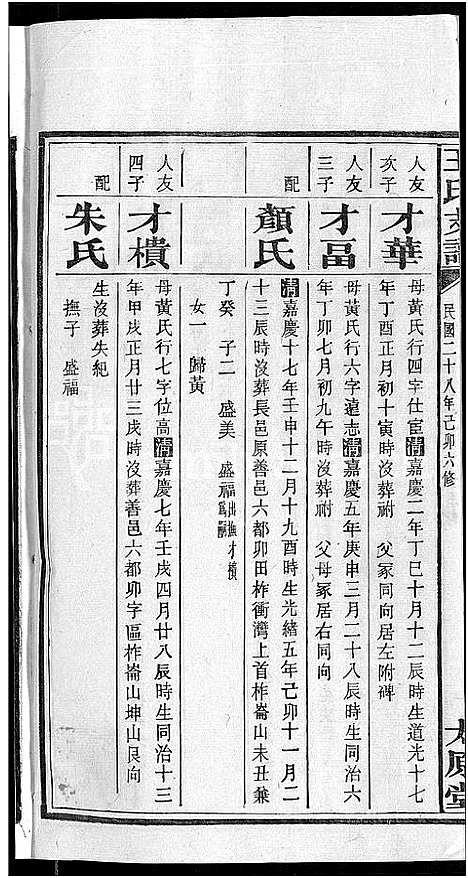 王氏支譜
民國二十八年己卯六修
太原堂
人友
次子
才華
母黃氏行四字仕宦清嘉慶二年丁巳十月十二辰時生道光十七
年丁酉正月初十寅時沒葬祔 父冢同向居左附碑
人友
三子
才畐
母黃氏行六字遠志清嘉慶五年庚申三月二十八辰時生同治六
年丁卯七月初九午時沒葬祔 父母冢居右同向
配
顏氏
清嘉慶十七年壬申十二月十九酉時生光緒五年己卯十一月二
十三辰時沒葬長邑原善邑六都卯田柞衝灣上首柞崙山未丑兼
丁癸 子二 盛美 盛福出撫才樻爲嗣
女一 歸黃
人友
四子
才樻
母黃氏行七字位高清嘉慶七年壬戌四月廿八辰時生同治十三
年甲戌正月廿三戌時沒葬善邑六都卯字區柞崙山坤山艮向
配
朱氏
生沒葬失紀
撫子 盛福